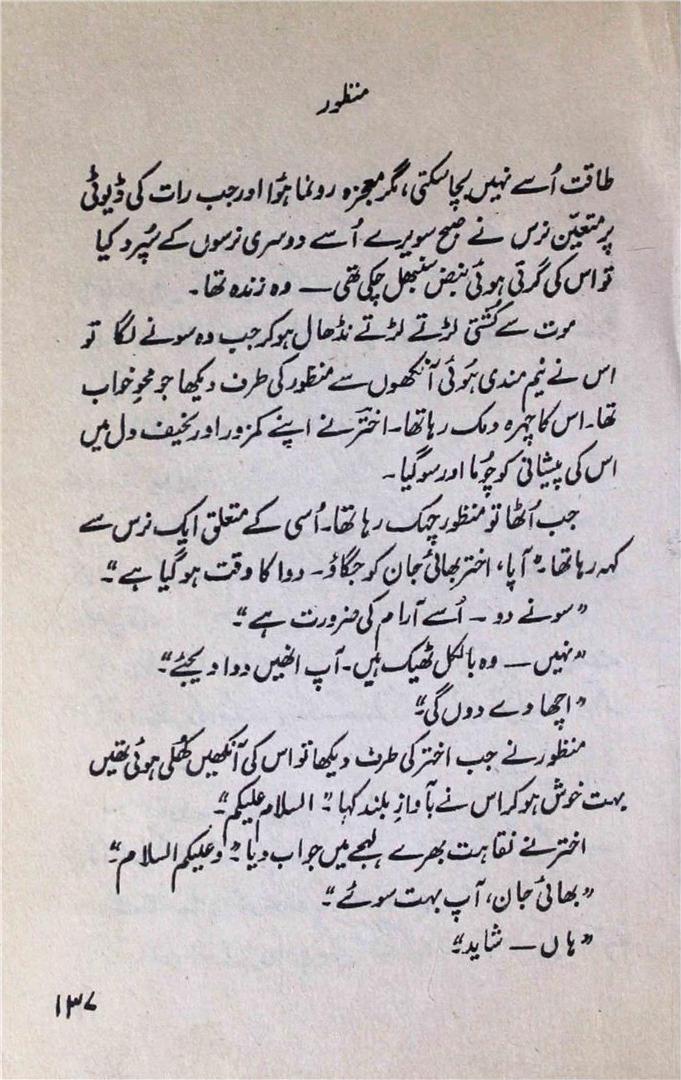 منظور
طاقت اُسے نہیں بچا سکتی، مگر معجزہ رونما ہؤا اور جب رات کی ڈیوٹی
پر متعیّن نرس نے صبح سویرے اُسے دوسری نرسوں کے سُپرد کیا
تو اس کی گرتی ہوئی نبض سنبھل چکی تھی — وہ زندہ تھا۔
موت سے کُشتی لڑتے لڑتے نڈھال ہو کر جب وہ سونے لگا تو
اس نے نیم مندی ہوئی آنکھوں سے منظور کی طرف دیکھا جو محوِ خواب
تھا۔ اس کا چہرہ دمک رہا تھا۔ اختر نے اپنے کمزور اور نحیف دل میں
اس کی پیشانی کو چُوما اور سو گیا۔
جب اُٹھا تو منظور چہک رہا تھا۔ اُسی کے متعلق ایک نرس سے
کہہ رہا تھا۔ "آپا، اختر بھائی جان کو جگاؤ۔ دوا کا وقت ہو گیا ہے"۔
"سونے دو۔ اُسے آرام کی ضرورت ہے"۔
"نہیں — وہ بالکل ٹھیک ہیں۔ آپ انھیں دوا دیجئے"۔
"اچھا دے دوں گی"۔
منظور نے جب اختر کی طرف دیکھا تو اس کی آنکھیں کُھلی ہوئی تھیں
بہت خوش ہو کر اس نے بآوازِ بلند کہا "السلام علیکم"۔
اختر نے نقاہت بھرے لہجے میں جواب دیا "وعلیکم السلام"۔
"بھائی جان، آپ بہت سوئے"۔
"ہاں — شاید"۔
۱۳۷